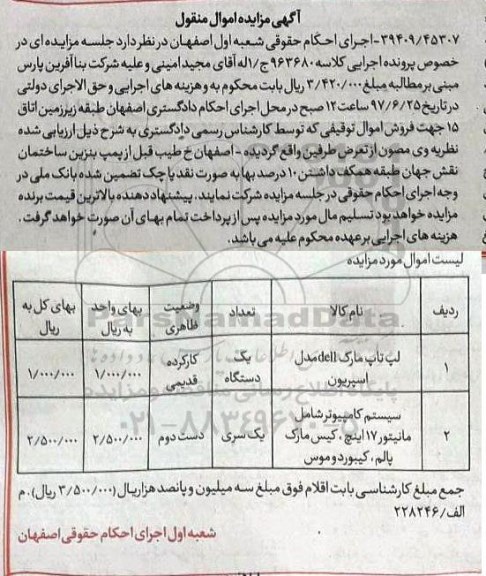 آگهی مزایده اموال منقول
۳۹۴۰۹/۴۵۳۰۷-اجرای احکام حقوقی شعبه اول اصفهان در نظر دارد جلسه مزایده ای در
خصوص پرونده اجرایی کلاسه ۹۶۳۶۸۰ ج/۱ له آقای مجید امینی و علیه شرکت بنا آفرین پارس
مبنی بر مطالبه مبلغ ۳/۴۲۰/۰۰۰ ریال بابت محکوم به و هزینه های اجرایی و حق الاجرای دولتی
در تاریخ ۹۷/۶/۲۵ ساعت ۱۲ صبح در محل اجرای احکام دادگستری اصفهان طبقه زیرزمین اتاق
۱۵ جهت فروش اموال توقیفی که توسط کارشناس رسمی دادگستری به شرح ذیل ارزیابی شده
نظریه وی مصون از تعرض طرفین واقع گردیده - اصفهان خ طیب قبل از پمپ بنزین ساختمان
نقش جهان طبقه همکف داشتن ۱۰ درصد بها به صورت نقد یا چک تضمین شده بانک ملی در
وجه اجرای احکام حقوقی در جلسه مزایده شرکت نمایند. پیشنهاد دهنده بالاترین قیمت برنده
مزایده خواهد بود تسلیم مال مورد مزایده پس از پرداخت تمام بهای آن صورت خواهد گرفت.
هزینه های اجرایی بر عهده محکوم علیه می باشد.
لیست اموال مورد مزایده
ردیف نام کالا تعداد وضعیت ظاهری بهای واحد به ریال بهای کل به ریال
۱ لپ تاپ مارک dell مدل اسپریون یک دستگاه کارکرده قدیمی ۱/۰۰۰/۰۰۰ ۱/۰۰۰/۰۰۰
۲ سیستم کامپیوتر شامل مانیتور ۱۷ اینچ، کیس مارک پالم، کیبورد و موس یک سری دست دوم ۲/۵۰۰/۰۰۰ ۲/۵۰۰/۰۰۰
جمع مبلغ کارشناسی بابت اقلام فوق مبلغ سه میلیون و پانصد هزار ریال (۳/۵۰۰/۰۰۰ ریال). م
الف/۲۲۸۲۴۶
شعبه اول اجرای احکام حقوقی اصفهان
ParsNamadData
۰۲۱-۸۸۳۴۹۶۷۰-۵